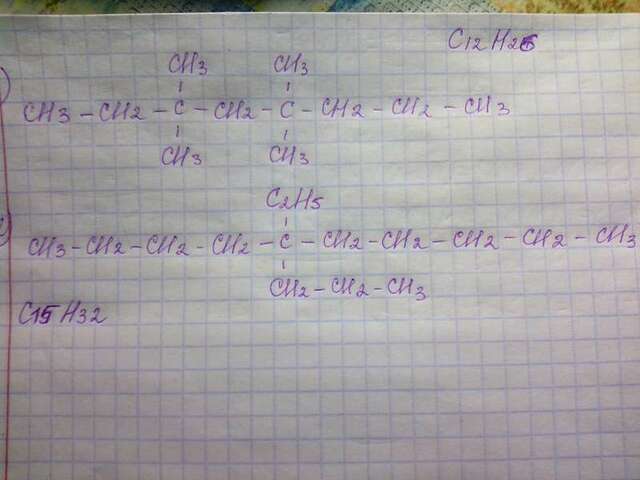 C12H26
CH3 CH3
CH3 - CH2 - C - CH2 - C - CH2 - CH2 - CH3
CH3 CH3
C2H5
CH3 - CH2 - CH2 - CH2 - C - CH2 - CH2 - CH2 - CH2 - CH3
CH2 - CH2 - CH3
C15H32